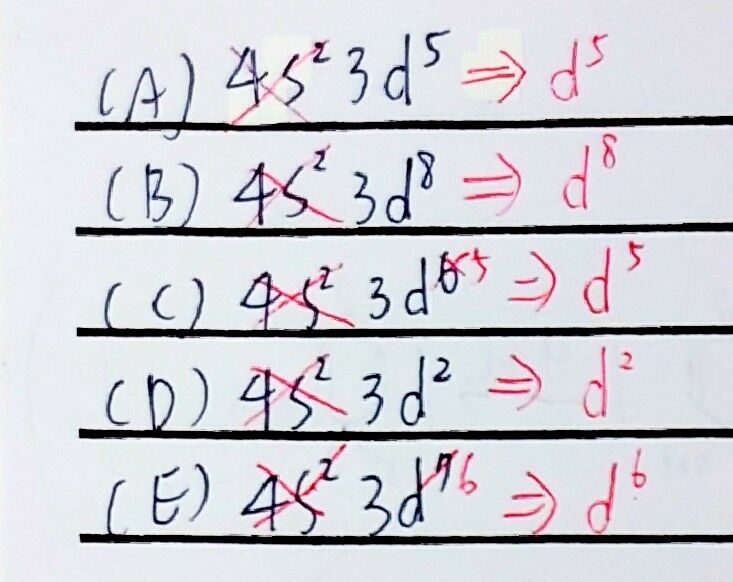 (A) 4s² 3d⁵ ⇒ d⁵
(B) 4s² 3d⁸ ⇒ d⁸
(C) 4s² 3d⁶ ⁵ ⇒ d⁵
(D) 4s² 3d² ⇒ d²
(E) 4s² 3d⁷ ⁶ ⇒ d⁶